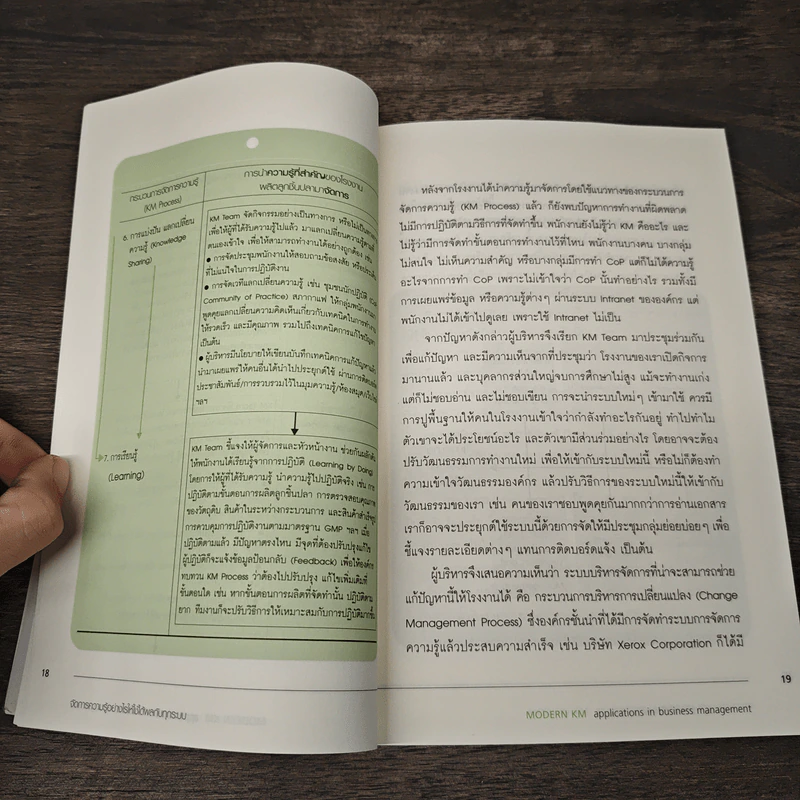 กระบวนการจัดการความรู้
(KM Process)
การนำความรู้ที่สำคัญของโรงงาน
ผลิตลูกชิ้นปลามาจัดการ
6. การแบ่งปัน แลกเปลี่ยน
ความรู้ (Knowledge
Sharing)
KM Team จัดกิจกรรมอย่างเป็นทางการ หรือไม่เป็นทางการ
เพื่อให้ผู้ที่ได้รับความรู้ไปแล้ว มาแลกเปลี่ยนความรู้ตามที่
ตนเองเข้าใจ เพื่อให้สามารถทำงานได้อย่างถูกต้อง เช่น
• การจัดประชุมพนักงานให้สอบถามข้อสงสัย หรือประเด็น
ที่ไม่แน่ใจในการปฏิบัติงาน
• การจัดเวทีแลกเปลี่ยนความรู้ เช่น ชุมชนนักปฏิบัติ
Community of Practice) สภากาแฟ ให้กลุ่มพนักงาน
พูดคุยแลกเปลี่ยนความคิดเห็นเกี่ยวกับเทคนิคในการทำงาน
ให้รวดเร็ว และมีคุณภาพ รวมไปถึงเทคนิคการแก้ไขปัญหา
เป็นต้น
• ผู้บริหารมีนโยบายให้เขียนบันทึกเทคนิคการแก้ปัญหาแล้ว
นำมาเผยแพร่ให้คนอื่นได้นำไปประยุกต์ใช้ ผ่านการติดบอร์ด
ประชาสัมพันธ์/การรวบรวมไว้ในมุมความรู้/ห้องสมุด/เว็บไซต์
ฯลฯ
7. การเรียนรู้
(Learning)
KM Team ชี้แจงให้ผู้จัดการและหัวหน้างาน ช่วยกันผลักดัน
ให้พนักงานได้เรียนรู้จากการปฏิบัติ (Learning by Doing)
โดยการให้ผู้ที่ได้รับความรู้ นำความรู้ไปปฏิบัติจริง เช่น การ
ปฏิบัติตามขั้นตอนการผลิตลูกชิ้นปลา การตรวจสอบคุณภาพ
ของวัตถุดิบ สินค้าในระหว่างกระบวนการ และสินค้าสำเร็จรูป
การควบคุมการปฏิบัติงานตามมาตรฐาน GMP ฯลฯ เมื่อ
ปฏิบัติตามแล้ว มีปัญหาตรงไหน มีจุดที่ต้องปรับปรุงแก้ไข
ผู้ปฏิบัติก็จะแจ้งข้อมูลป้อนกลับ (Feedback) เพื่อให้องค์กร
ทบทวน KM Process ว่าต้องไปปรับปรุง แก้ไขเพิ่มเติมที่
ขั้นตอนใด เช่น หากขั้นตอนการผลิตที่จัดทำนั้น ปฏิบัติตาม
ยาก ทีมงานก็จะปรับวิธีการให้เหมาะสมกับการปฏิบัติมากขึ้น
18
จัดการความรู้อย่างไรให้ใช้ได้ผลกับทุกระบบ
หลังจากโรงงานได้นำความรู้มาจัดการโดยใช้แนวทางของกระบวนการ
จัดการความรู้ (KM Process) แล้ว ก็ยังพบปัญหาการทำงานที่ผิดพลาด
ไม่มีการปฏิบัติตามวิธีการที่จัดทำขึ้น พนักงานยังไม่รู้ว่า KM คืออะไร และ
ไม่รู้ว่ามีการจัดทำขั้นตอนการทำงานไว้ที่ไหน พนักงานบางคน บางกลุ่ม
ไม่สนใจ ไม่เห็นความสำคัญ หรือบางกลุ่มมีการทำ CoP แต่ก็ไม่ได้ความรู้
อะไรจากการทำ CoP เพราะไม่เข้าใจว่า CoP นั้นทำอย่างไร รวมทั้งมี
การเผยแพร่ข้อมูล หรือความรู้ต่างๆ ผ่านระบบ Intranet ขององค์กร แต่
พนักงานไม่ได้เข้าไปดูเลย เพราะใช้ Intranet ไม่เป็น
จากปัญหาดังกล่าวผู้บริหารจึงเรียก KM Team มาประชุมร่วมกัน
เพื่อแก้ปัญหา และมีความเห็นจากที่ประชุมว่า โรงงานของเราเปิดกิจการ
มานานแล้ว และบุคลากรส่วนใหญ่จบการศึกษาไม่สูง แม้จะทำงานเก่ง
แต่ก็ไม่ชอบอ่าน และไม่ชอบเขียน การจะนำระบบใหม่ๆ เข้ามาใช้ ควรมี
การปูพื้นฐานให้คนในโรงงานเข้าใจว่ากำลังทำอะไรกันอยู่ ทำไปทำไม
ตัวเขาจะได้ประโยชน์อะไร และตัวเขามีส่วนร่วมอย่างไร โดยอาจจะต้อง
ปรับวัฒนธรรมการทำงานใหม่ เพื่อให้เข้ากับระบบใหม่นี้ หรือไม่ก็ต้องทำ
ความเข้าใจวัฒนธรรมองค์กร แล้วปรับวิธีการของระบบใหม่นี้ให้เข้ากับ
วัฒนธรรมของเรา เช่น คนของเราชอบพูดคุยกันมากกว่าการอ่านเอกสาร
เราก็อาจจะประยุกต์ใช้ระบบนี้ด้วยการจัดให้มีประชุมกลุ่มย่อยบ่อยๆ เพื่อ
ชี้แจงรายละเอียดต่างๆ แทนการติดบอร์ดแจ้ง เป็นต้น
ผู้บริหารจึงเสนอความเห็นว่า ระบบบริหารจัดการที่น่าจะสามารถช่วย
แก้ปัญหานี้ให้โรงงานได้ คือ กระบวนการบริหารการเปลี่ยนแปลง (Change
Management Process) ซึ่งองค์กรชั้นนำที่ได้มีการจัดทำระบบการจัดการ
ความรู้แล้วประสบความสำเร็จ เช่น บริษัท Xerox Corporation ก็ได้มี
19
MODERN KM applications in business management